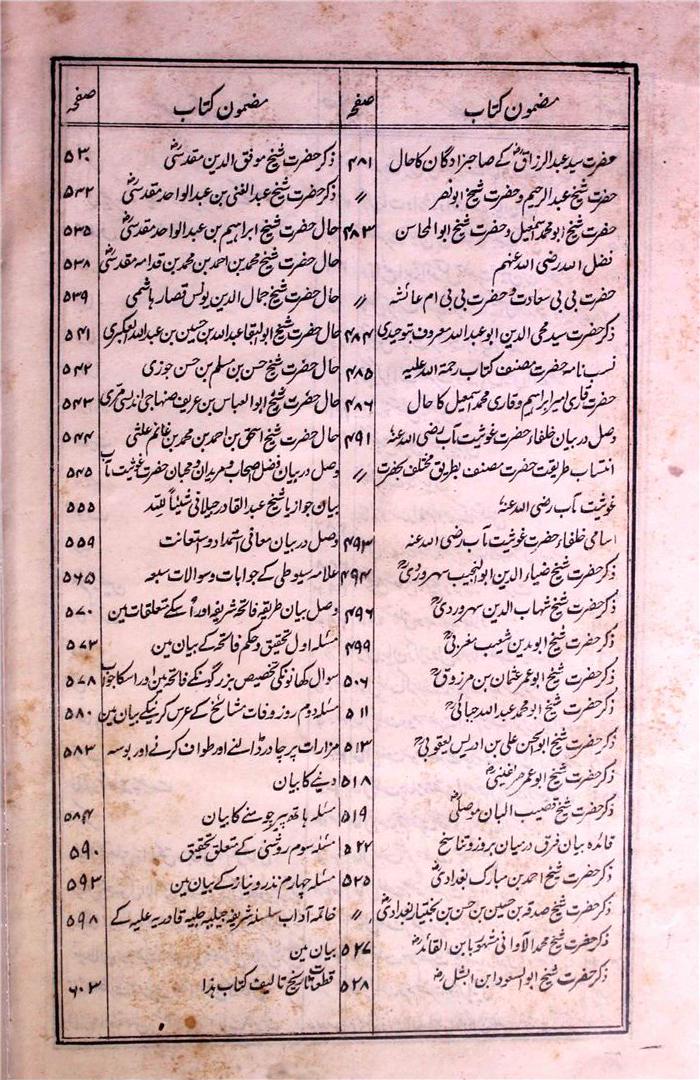 مضمون کتاب صفحہ
حضرت سید عبدالرزاقؒ کے صاحبزادگان کا حال ۴۸۱
حضرت شیخ عبدالرحیم و حضرت شیخ ابونصر ״
حضرت شیخ ابومحمد اسمٰعیل و حضرت شیخ ابوالمحاسن ۴۸۳
فضل اللہ رضی اللہ عنہم
حضرت بی بی سعادت و حضرت بی بی ام عائشہ ״
ذکر حضرت سید محی الدین ابو عبداللہ معروف بتوحیدی ۴۸۴
نسب نامہ حضرت مصنف کتاب رحمۃ اللہ علیہ ۴۸۵
حضرت قاری امیر ابراہیم و قاری محمد اسمٰعیل کا حال ۴۸۶
وصل در بیان خلفاء حضرت غوثیت مآب رضی اللہ عنہ ۴۹۱
انتساب طریقت حضرت مصنف بطریق مختلف بحضرت ״
غوثیت مآب رضی اللہ عنہ
اسامی خلفاء حضرت غوثیت مآب رضی اللہ عنہ ۴۹۳
ذکر حضرت شیخ ضیاء الدین ابوالنجیب سہروردیؒ ۴۹۴
ذکر حضرت شیخ شہاب الدین سہروردیؒ ۴۹۶
ذکر حضرت شیخ ابو مدین شعیب مغربیؒ ۴۹۹
ذکر حضرت شیخ ابو عمر عثمان بن مرزوقؒ ۵۰۶
ذکر حضرت شیخ ابو محمد عبداللہ جبائیؒ ۵۱۱
ذکر حضرت شیخ ابوالحسن علی بن ادریس یعقوبیؒ ۵۱۳
ذکر حضرت شیخ ابو عمر صریفینیؒ ۵۱۸
ذکر حضرت شیخ قضیب البان موصلیؒ ۵۱۹
فائدہ بیان فرق درمیان بروز و تناسخ ۵۲۲
ذکر حضرت شیخ احمد بن مبارک بغدادیؒ ۵۲۵
ذکر حضرت شیخ صدقہ بن حسین بن حسن بن بختیار بغدادیؒ ״
ذکر حضرت شیخ محمد الاوانی مشہور بابن القائدؒ ۵۲۷
ذکر حضرت شیخ ابوالسعود ابن الشبلؒ ۵۲۸
مضمون کتاب صفحہ
ذکر حضرت شیخ موفق الدین مقدسیؒ ۵۳۰
ذکر حضرت شیخ عبدالغنی بن عبدالواحد مقدسیؒ ۵۳۲
حال حضرت شیخ ابراہیم بن عبدالواحد مقدسیؒ ۵۳۵
حال حضرت شیخ محمد بن احمد بن محمد بن قدامہ مقدسیؒ ۵۳۸
حال حضرت شیخ جمال الدین یونس قصار ہاشمی ۵۳۹
حال حضرت شیخ ابوالبقا عبداللہ بن حسین بن عبداللہ العکبری ۵۴۱
حال حضرت شیخ حسن بن مسلم بن حسن جوزی ۵۴۲
حال حضرت شیخ ابوالعباس بن عریف صنہاجی اندلسی مری ۵۴۳
حال حضرت شیخ اسحٰق بن احمد بن محمد بن غانم علثی ۵۴۴
وصل در بیان فضل اصحاب و مریدان و محبان حضرت غوثیت مآب ۵۴۵
بیان جواز یا شیخ عبدالقادر جیلانی شیئاً للہ ۵۵۵
وصل در بیان معانی استمداد و استعانت ۵۵۹
علامہ سیوطی کے جوابات و سوالات سبعہ ۵۶۵
وصل بیان طریقہ فاتحہ شریفہ اور اُسکے متعلقات مین ۵۷۰
مسئلہ اول تحقیق و حکم فاتحہ کے بیان مین ۵۷۲
سوال کھانونکی تخصیص بزرگونکے فاتحہ مین اور اسکا جواب ۵۷۸
مسئلہ دوم روز وفات مشائخ کے عرس کرنیکے بیان مین ۵۸۰
مزارات پر چادر ڈالنے اور طواف کرنے اور بوسہ ۵۸۳
دینے کا بیان
مسئلہ ہاتھ پیر چومنے کا بیان ۵۸۴
مسئلہ سوم روشنی کے متعلق تحقیق ۵۹۰
مسئلہ چہارم نذر و نیاز کے بیان مین ۵۹۳
خاتمہ آداب سلسلہ شریفہ جیلیہ جلیہ قادریہ علیہ کے ۵۹۸
بیان مین
قطعات تاریخ تالیف کتاب ہذا ۶۰۳